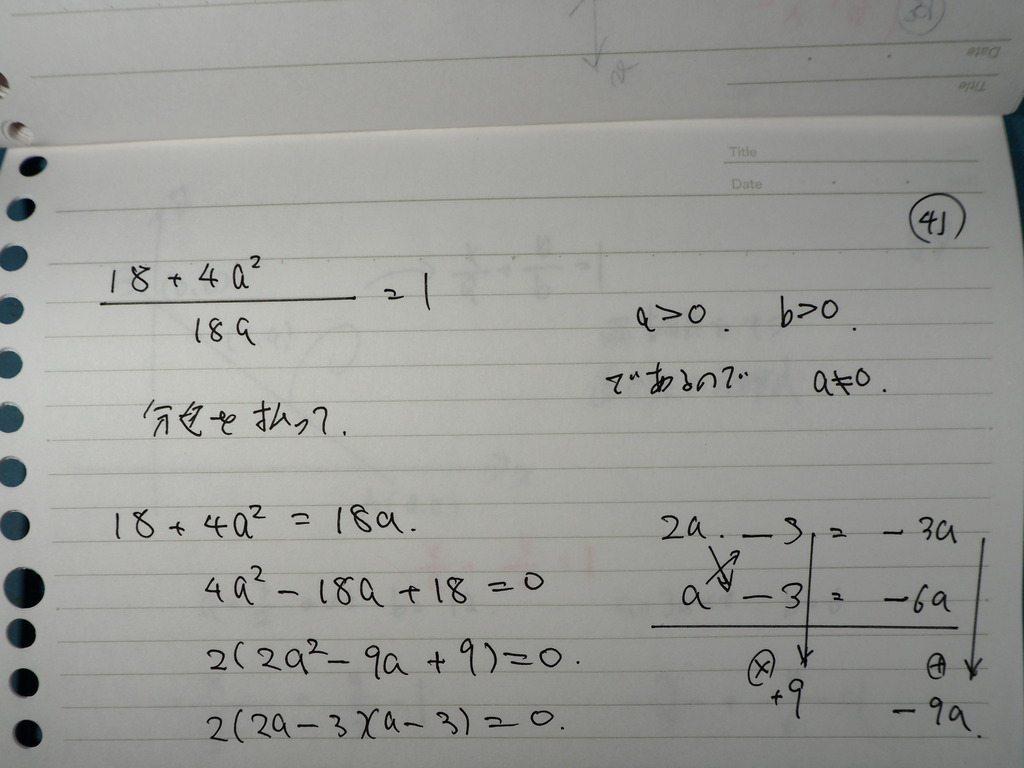 Date
Title
Title
Date
41
18 + 4a² / 18a = 1
a>0. b>0.
であるので a≠0.
分母を払って.
18 + 4a² = 18a.
4a² - 18a + 18 = 0
2(2a² - 9a + 9) = 0.
2(2a - 3)(a - 3) = 0.
2a - 3 = -3a
a - 3 = -6a
× +
+9 -9a.